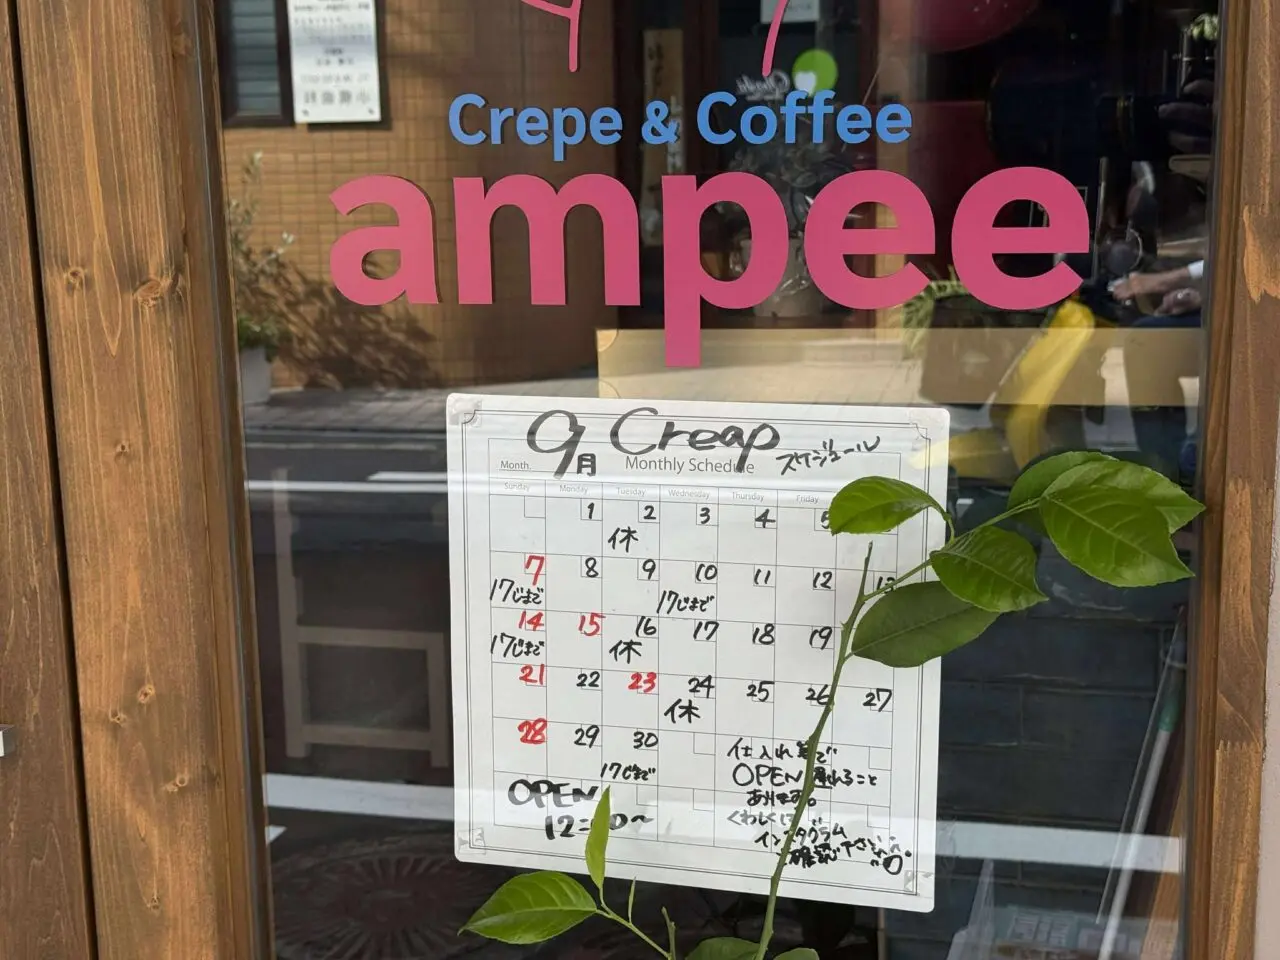 Crepe & Coffee
ampee
9月 Creap スケジュール
Month. Monthly Schedule
Sunday Monday Tuesday Wednesday Thursday Friday
1 2 3 4 5
休
7 8 9 10 11 12 13
17じまで 17じまで
14 15 16 17 18 19
17じまで 休
21 22 23 24 25 26 27
休
28 29 30
17じまで
仕入れ等で
OPEN 遅れること
あります。
OPEN
12:00~
くわしくは
インスタグラム
ご確認下さい